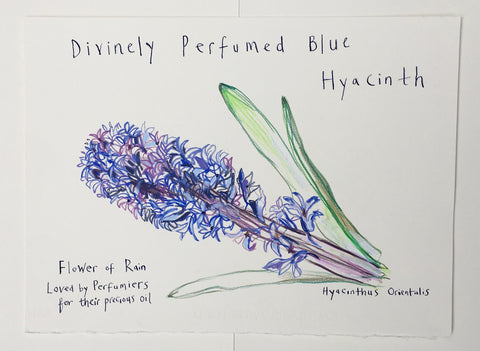 Divinely Perfumed Blue
Hyacinth
Flower of Rain
Loved by Perfumiers
for their precious oil
Hyacinthus Orientalis